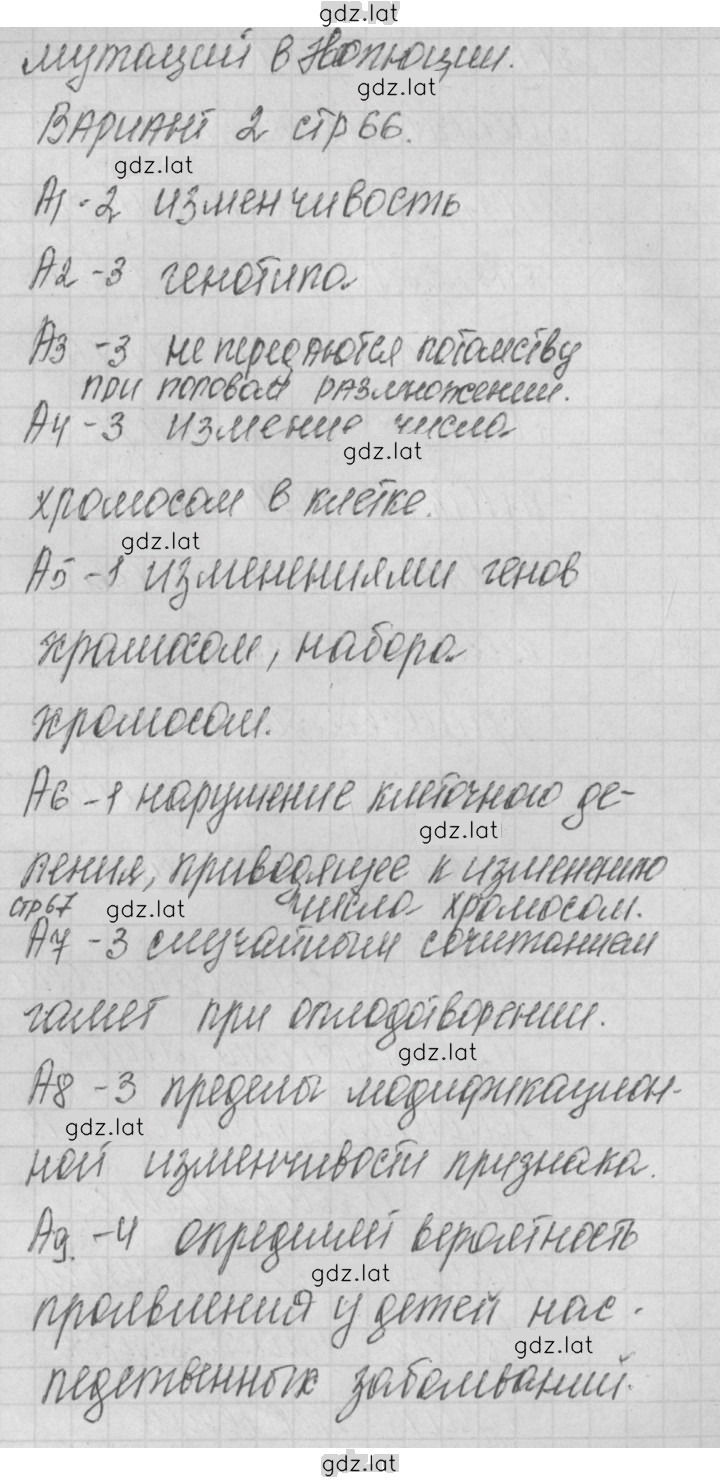 gdz.lat
мутаций в
gdz.lat
Вариант 2 стр 66.
gdz.lat
А1 - 2 изменчивость
А2 - 3 генотипа
А3 - 3 не передаются потомству
при половом размножении.
А4 - 3 измение числа
gdz.lat
хромосом в клетке.
gdz.lat
А5 - 1 изменениями генов
хромосом, набора
хромосом.
А6 - 1 нарушение клеточного де-
gdz.lat
ления, приводящее к изменению
стр 67 gdz.lat числа хромосом.
А7 - 3 случайным сочитанием
гамет при оплодотворении.
gdz.lat
А8 - 3 пределы модификацион-
gdz.lat
ной изменчивости признака.
А9. - 4 определяет вероятность
gdz.lat
проявления у детей нас-
gdz.lat
ледственных заболваний.
gdz.lat